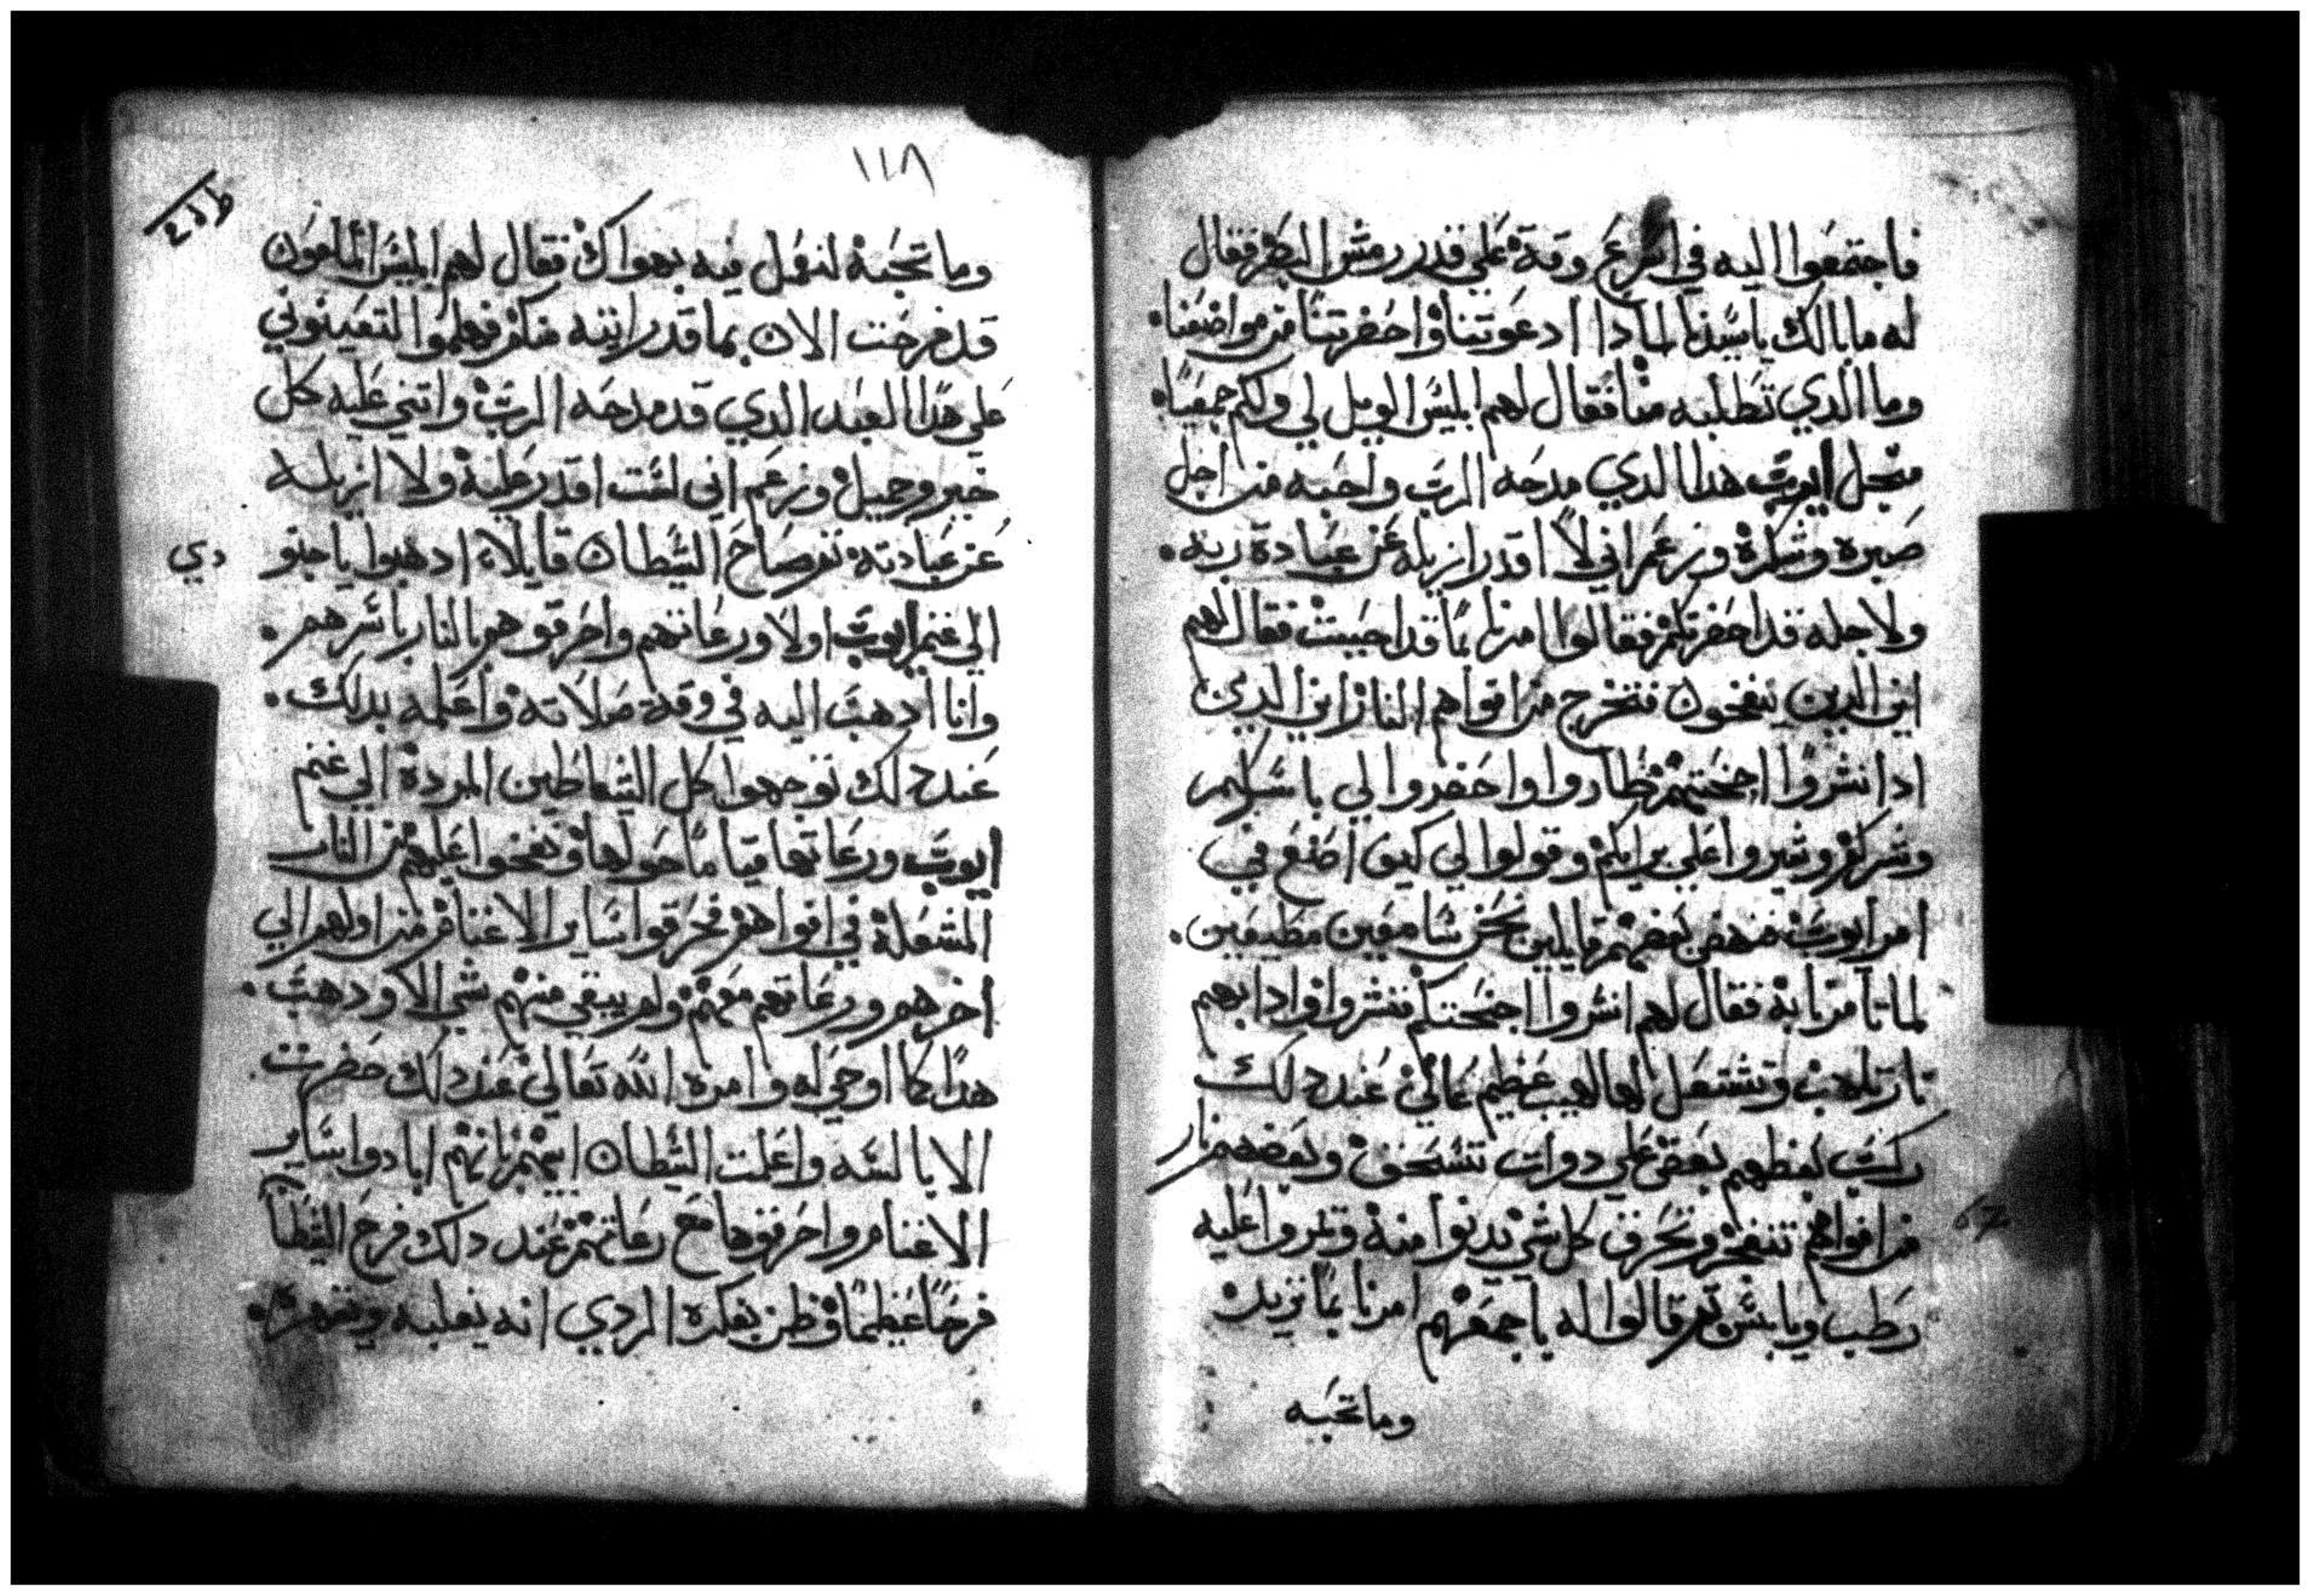 فاجتمعوا اليه في اسرع وقة على قدر رمش البصر فقال
له ما بالك يا سيدنا لمادا ادعوتنا واحضرتنا من مواضعنا
وما الدي تطلبه منا فقال لهم ابليس الويل لي ولكم جميعا
منجل ايوب هدا الدي مدحه الرب واحبه من اجل
صبره وشكره وزعم اني لا اقدر ازيله عن عبادة ربه
ولاجله قد احضرتكم فقالوا امرنا بما قد احببت فقال لهم
اين الدين ينفخون فتخرج من افواههم النار اين الدين
ادا نشروا اجنحتهم طاروا واحضروا لي باسركم
وشيروا علي برايكم وقولوا لي كيف اصنع في
امر ايوب فنهض بعضهم قايلين نحن سامعين مطيعين
لما تامرنا به فقال لهم انشروا اجنحتكم فنشروا وادا بهم
نار تلهب وتشتعل لها لهيب عظيم عالي عند دلك
ركب بعظهم بعض على دواب تسحق وبعضهم نار
من افواههم تنفخ وتحرق كل شي يدنوا منه وتمروا عليه
رطب ويابس ثم قالوا له باجمعهم امرنا بما تريد
وما تحبه
١١٨
وما تحبه لنعمل فيه بهواك فقال لهم ابليس الملعون
قد فرحت الان بما قد رايته منكم فهلموا لتعينوني
علي هدا العبد الدي قد مدحه الرب واتني عليه كل
خير وجميل وزعم اني لست اقدر عليه ولا ازيله
عن عبادته ثم صاح الشيطان قايلا ادهبوا يا جنودي
الي غنم ايوب اولا ورعاتهم واحرقوهم بالنار باسرهم
وانا ادهب اليه في وقة صلاته واعلمه بدلك
عند دلك توجهوا كل الشياطين المردة الي غنم
ايوب ورعاتها قياما حولها ونفخوا عليهم من النار
المشعلة في افواههم فحرقوا ساير الاغنام من اولهم الي
اخرهم ورعاتهم معهم ولم يبقي منهم شي الا ودهب
هدا كما اوحي له وامره الله تعالي عند دلك حضرت
الابالسه واعلمت الشيطان ابيهم بانهم ابادوا ساير
الاغنام واحرقوها مع رعاتهم عند دلك فرح الشيطان
فرحا عظيما وظن بفكره الردي انه يغلبه ويقهره